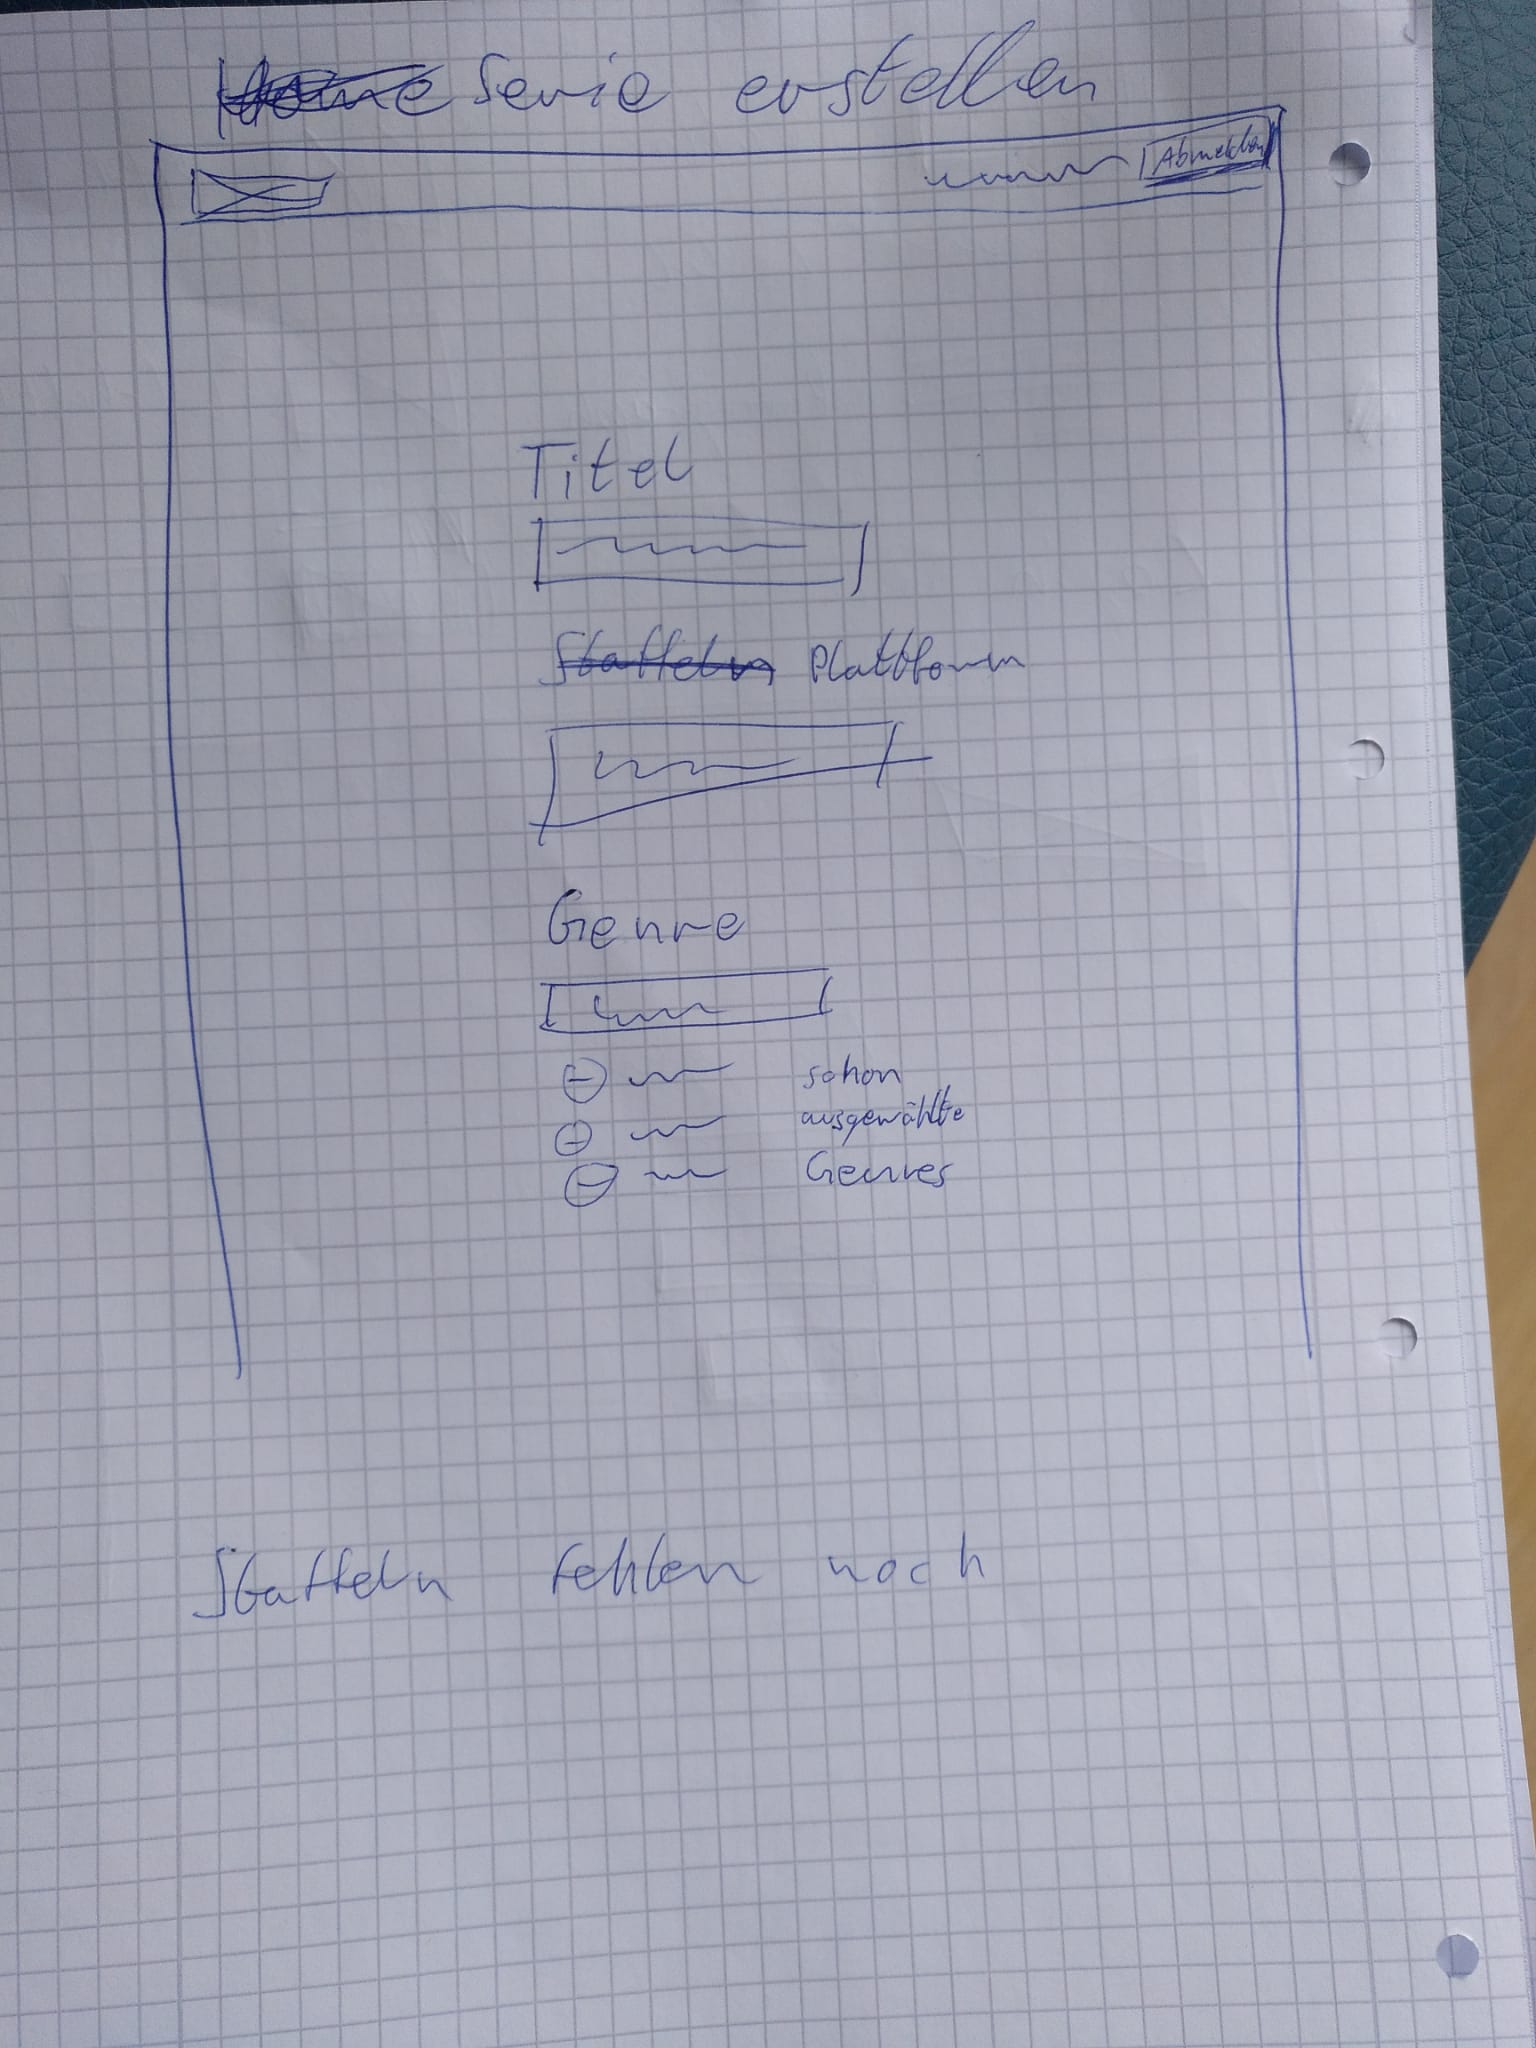 Home Serie erstellen
Abmelden
Titel
Staffeln Plattform
Genre
schon
ausgewählte
Genres
Staffeln fehlen noch